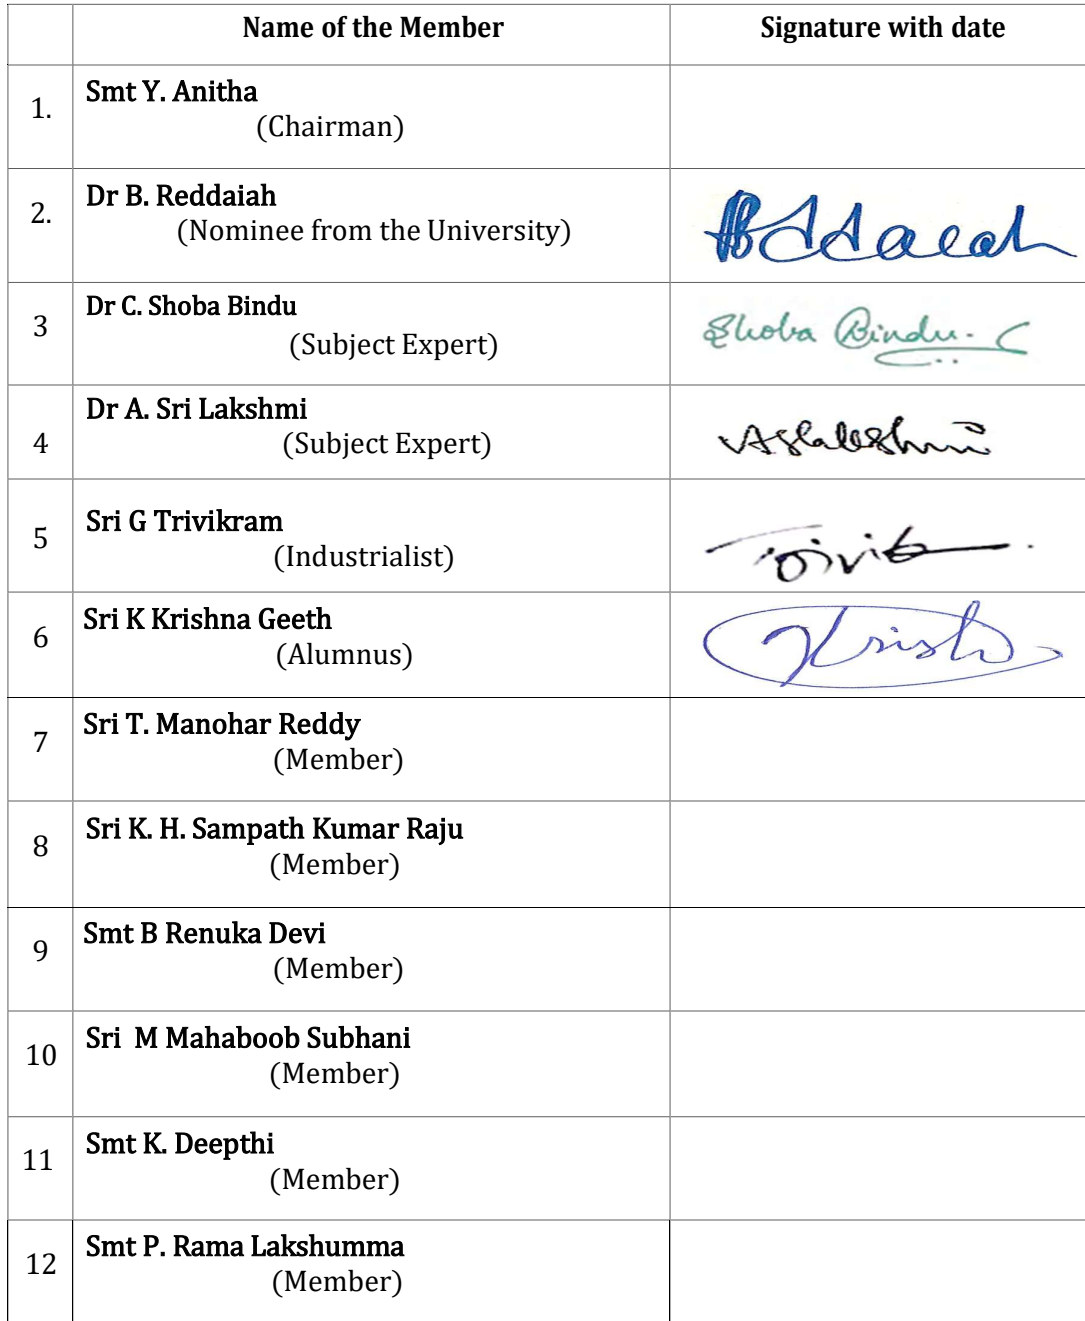 Name of the Member Signature with date
1. Smt Y. Anitha
(Chairman)
2. Dr B. Reddaiah
(Nominee from the University)
BDDaeah
3 Dr C. Shoba Bindu
(Subject Expert)
Shoba Bindu. C
4 Dr A. Sri Lakshmi
(Subject Expert)
5 Sri G Trivikram
(Industrialist)
6 Sri K Krishna Geeth
(Alumnus)
Krish
7 Sri T. Manohar Reddy
(Member)
8 Sri K. H. Sampath Kumar Raju
(Member)
9 Smt B Renuka Devi
(Member)
10 Sri M Mahaboob Subhani
(Member)
11 Smt K. Deepthi
(Member)
12 Smt P. Rama Lakshumma
(Member)